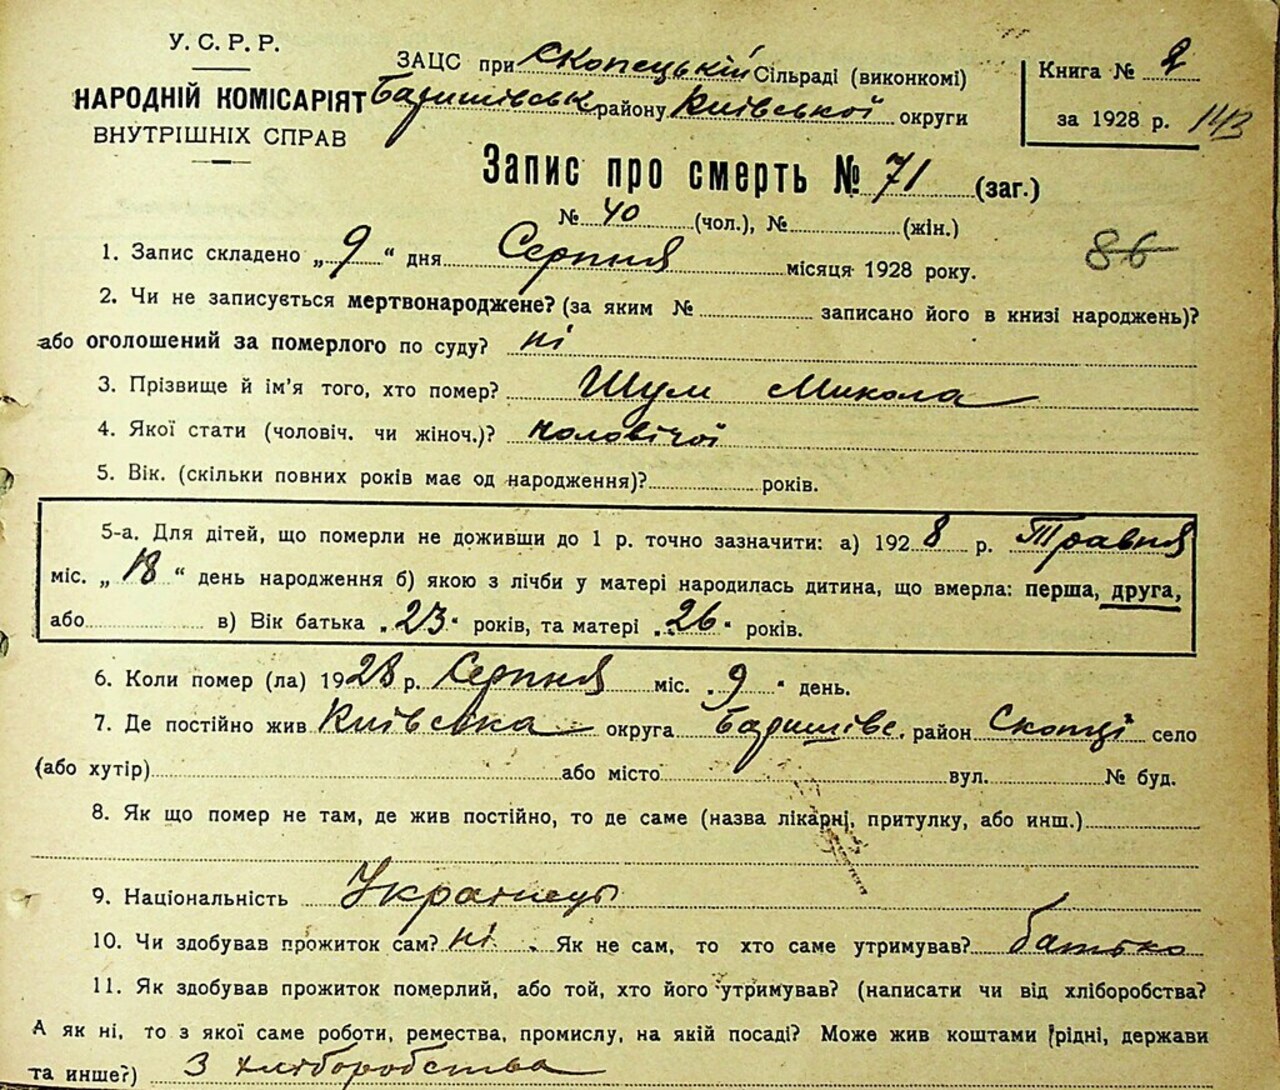 У. С. Р. Р.
НАРОДНІЙ КОМІСАРІЯТ
ВНУТРІШНІХ СПРАВ
ЗАЦС при Скопецькій Сільраді (виконкомі)
Баришівськ району Київської округи
Книга № 2
за 1928 р. 143
Запис про смерть № 71 (заг.)
№ 40 (чол.), № (жін.)
86
1. Запис складено „ 9 “ дня Серпня місяця 1928 року.
2. Чи не записується мертвонароджене? (за яким № записано його в книзі народжень)?
або оголошений за померлого по суду? ні
3. Прізвище й ім'я того, хто помер? Шум Микола
4. Якої стати (чоловіч. чи жіноч.)? чоловічої
5. Вік. (скільки повних років має од народження)? років.
5-а. Для дітей, що померли не доживши до 1 р. точно зазначити: а) 192 8 р. Травня
міс. „ 18 “ день народження б) якою з лічби у матері народилась дитина, що вмерла: перша, друга,
або в) Вік батька „ 23 “ років, та матері „ 26 “ років.
6. Коли помер (ла) 19 28 р. Серпня міс. „ 9 “ день.
7. Де постійно жив Київська округа Баришівс. район Скопці село
(або хутір) або місто вул. № буд.
8. Як що помер не там, де жив постійно, то де саме (назва лікарні, притулку, або инш.)
9. Національність Українець
10. Чи здобував прожиток сам? ні . Як не сам, то хто саме утримував? батько
11. Як здобував прожиток померлий, або той, хто його утримував? (написати чи від хліборобства?
А як ні, то з якої саме роботи, ремества, промислу, на якій посаді? Може жив коштами (рідні, держави
та инше?) З хліборобства